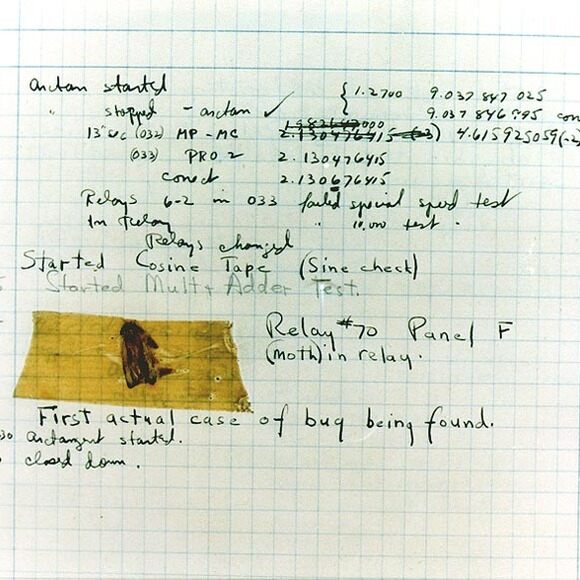 arctan started { 1.2700 9.037 847 025
" stopped - arctan ✓ 9.037 846 995 con
13"uc (032) MP - MC 2.130476415 (-3) 4.615925059(-2
(033) PRO 2 2.130476415
conect 2.130676415
Relays 6-2 in 033 failed special speed test
In Relay " 10.000 test .
Relays changed
Started Cosine Tape (Sine check)
Started Mult+ Adder Test.
Relay #70 Panel F
(moth) in relay.
First actual case of bug being found.
arctangent started.
closed down .